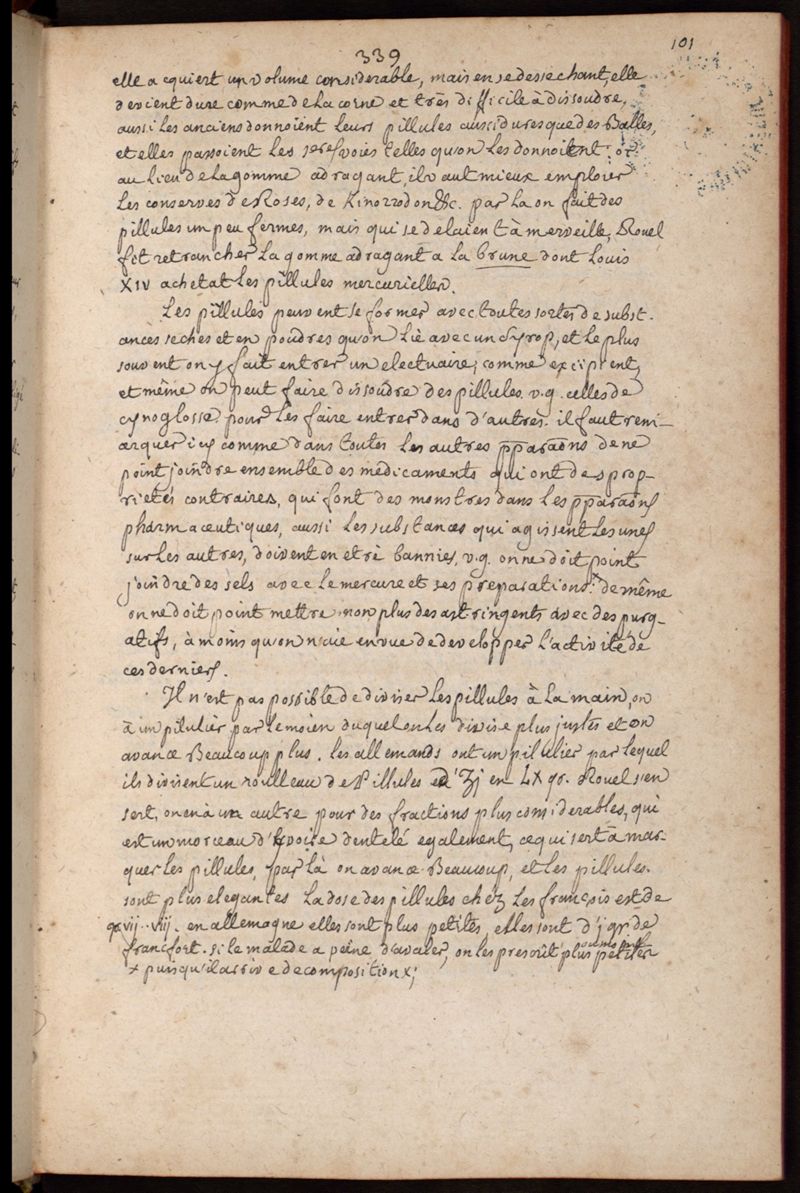 101
339
elle acquiert un volume considerable, mais en se dessechant, elle
devient dure comme de la corne et très difficile à dissoudre,
aussi les anciens donnoient leurs pillules aussi dures que des Balles,
et elles passoient les 1eres voies telles qu'on les donnoitent; or
au lieu de la gomme adragant, il vaut mieux emploier
les conserves de Roses, de Kinorrodon &c. par la on fait des
pillules un peu fermes, mais qui se delaient à merveille, Rouel
fit retrancher la gomme adragant a la brune dont Louis
XIV achetat les pillules mercurielles.
Les pillules peuvent se former avec toutes sortes de subst-
ances seches et en poudres qu'on lie avec un syrop, et le plus
souvent on y fait entrer un electuaire, comme excipient,
et même on peut faire dissoudre des pillules v.g. celles de
cynoglosse pour les faire entrer dans d'autres. il faut rem-
arquer icy comme dans toutes les autres pparaons de ne
point joindre ensemble des medicaments qui ont des prop-
rietés contraires, qui font des monstres dans les pparaons
pharmaceutiques, aussi les substances qui agissent les unes
sur les autres, doivent en etre bannies, v.g. on ne doit point
joindre des sels avec le mercure et ses preparations. x de même
on ne doit point mettre non plus des astringents avec des purg-
atifs, à moins qu'on n'aie en vue de developper l'activité de
ces derniers.
Il n'est pas possible de diviser les pillules à la main, on
à un pilulier par le moien duquel on les divise plus justes et on
avance Beaucoup plus. les allemands ont un pilulier par lequel
ils divisent un roulleau de Pillules d'ʒj en LX gr. Rouel s'en
sert, on en à un autre pour des fractions plus considerables, qui
est un morceau d'Yvoire dentelé egalement, ce qui sert à mar-
quer les pillules, par là on avance Beaucoup, et les pillules
sont plus elegantes La dose des pillules chéz les françois est de
en allemagne elles sont plus petites, elles sont d'j gr. de
francfort. si le malade a peine d'avaler, on les prescrit plus petites
x puisqu'il arrive decomposition x;